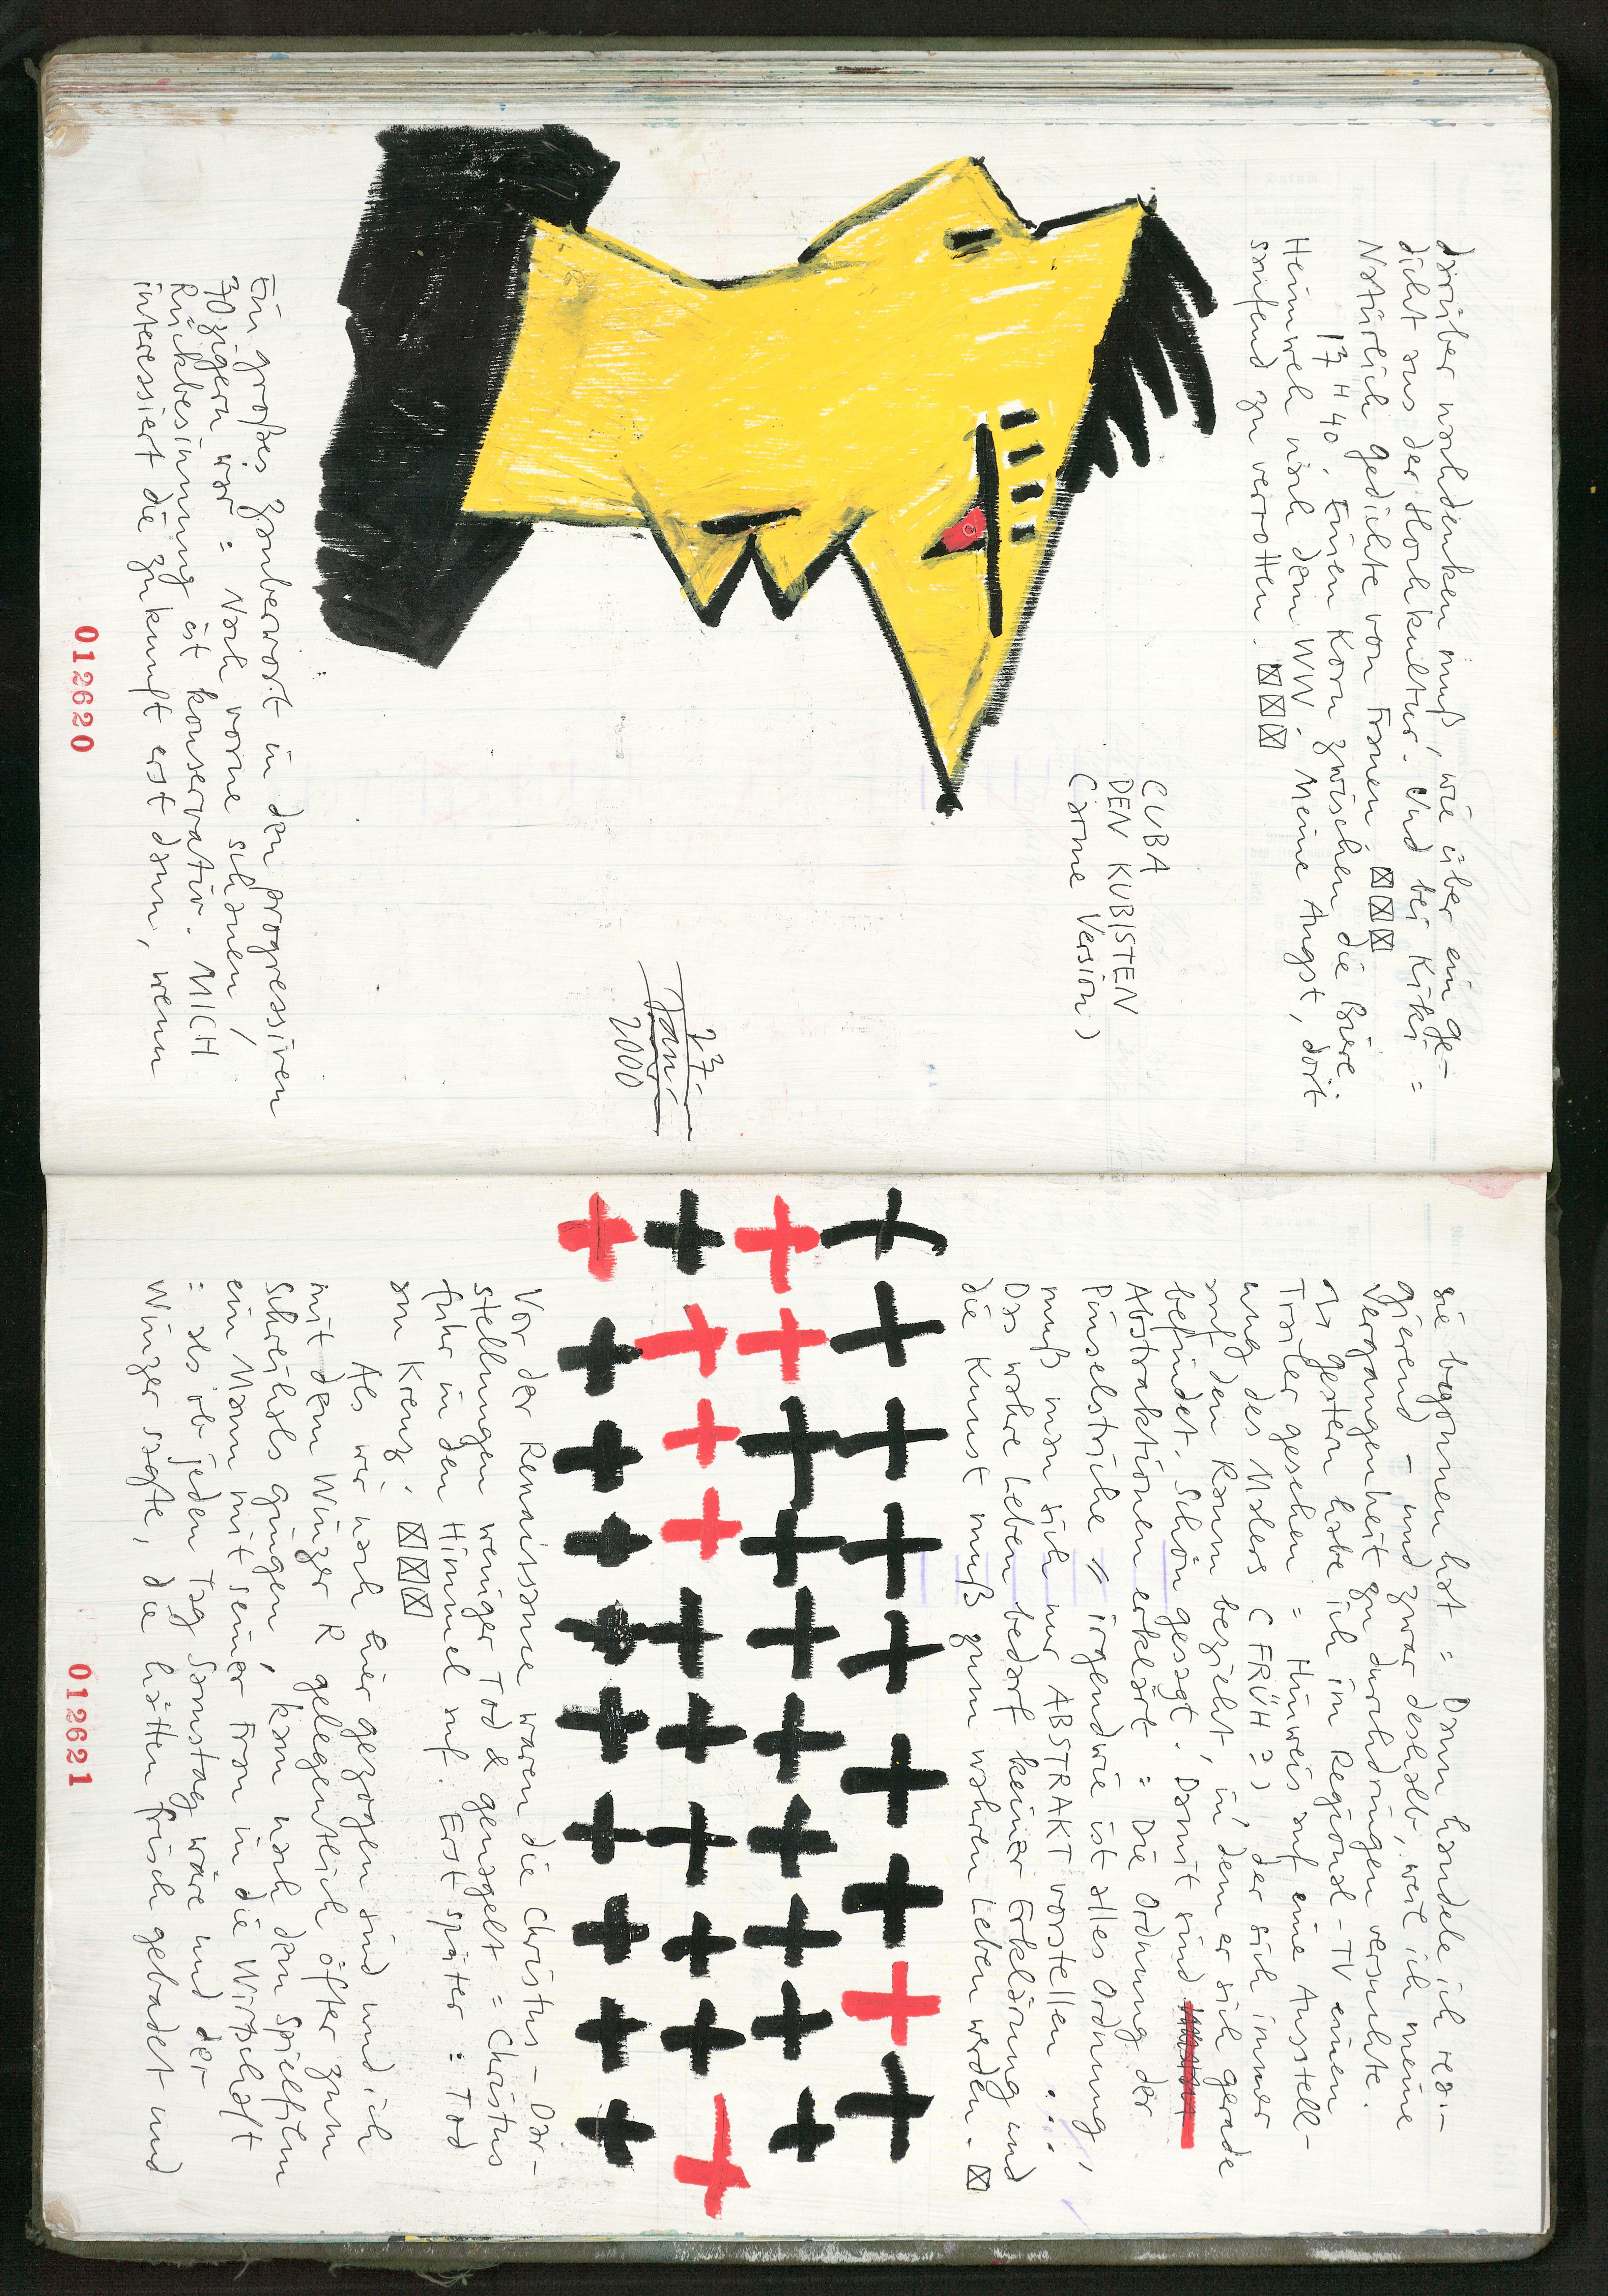 darüber nachdenken muß, wie über ein Ge-
dicht aus der Hochkultur. Und bei Kiki =
Natürlich Gedichte von Frauen. ☒☒☒
17 H 40. Einen Korn zwischen die Biere.
Heimweh nach dem WW. Meine Angst, dort
saufend zu verrotten. ☒☒☒
CUBA
DEN KUBISTEN
(arme Version)
27.
Jan.
2000
Ein großes Zauberwort in den progressiven
70zigern war = Nach vorne schauen!
Rückbesinnung ist konservativ. MICH
interessiert die Zukunft erst dann, wenn
012620
sie begonnen hat = Dann handele ich rea-
gierend – und zwar deshalb, weil ich meine
Vergangenheit zu durchdringen versuchte.
gestern habe ich im Regional-TV einen
Trailer gesehen = Hinweis auf eine Ausstell-
ung des Malers (FRÜH?) der sich immer
auf den Raum bezieht, in dem er sich gerade
befindet. Schön gesagt. Damit sind
Abstraktionen erklärt = Die Ordnung der
Pinselstriche // irgendwie ist alles Ordnung,
muß man sich nur ABSTRAKT vorstellen...
Das wahre Leben bedarf keiner Erklärung und
die Kunst muß zum wahren Leben werden. ☒
Vor der Renaissance waren die Christus-Dar-
stellungen weniger Tod & genagelt = Christus
fuhr in den Himmel auf. Erst später = Tod
am Kreuz. ☒☒☒
Als wir nach hier gezogen sind und ich
mit dem Winzer R gelegentlich öfter zum
Schreihals gingen, kam nach dem Spielfilm
ein Mann mit seiner Frau in die Wirtschaft
= als ob jeden Tag Samstag wäre und der
Winzer sagte, die hätten frisch gebadet und
012621